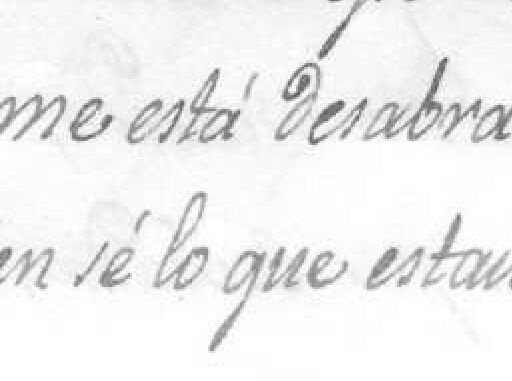 me está desabra
en sé lo que estau